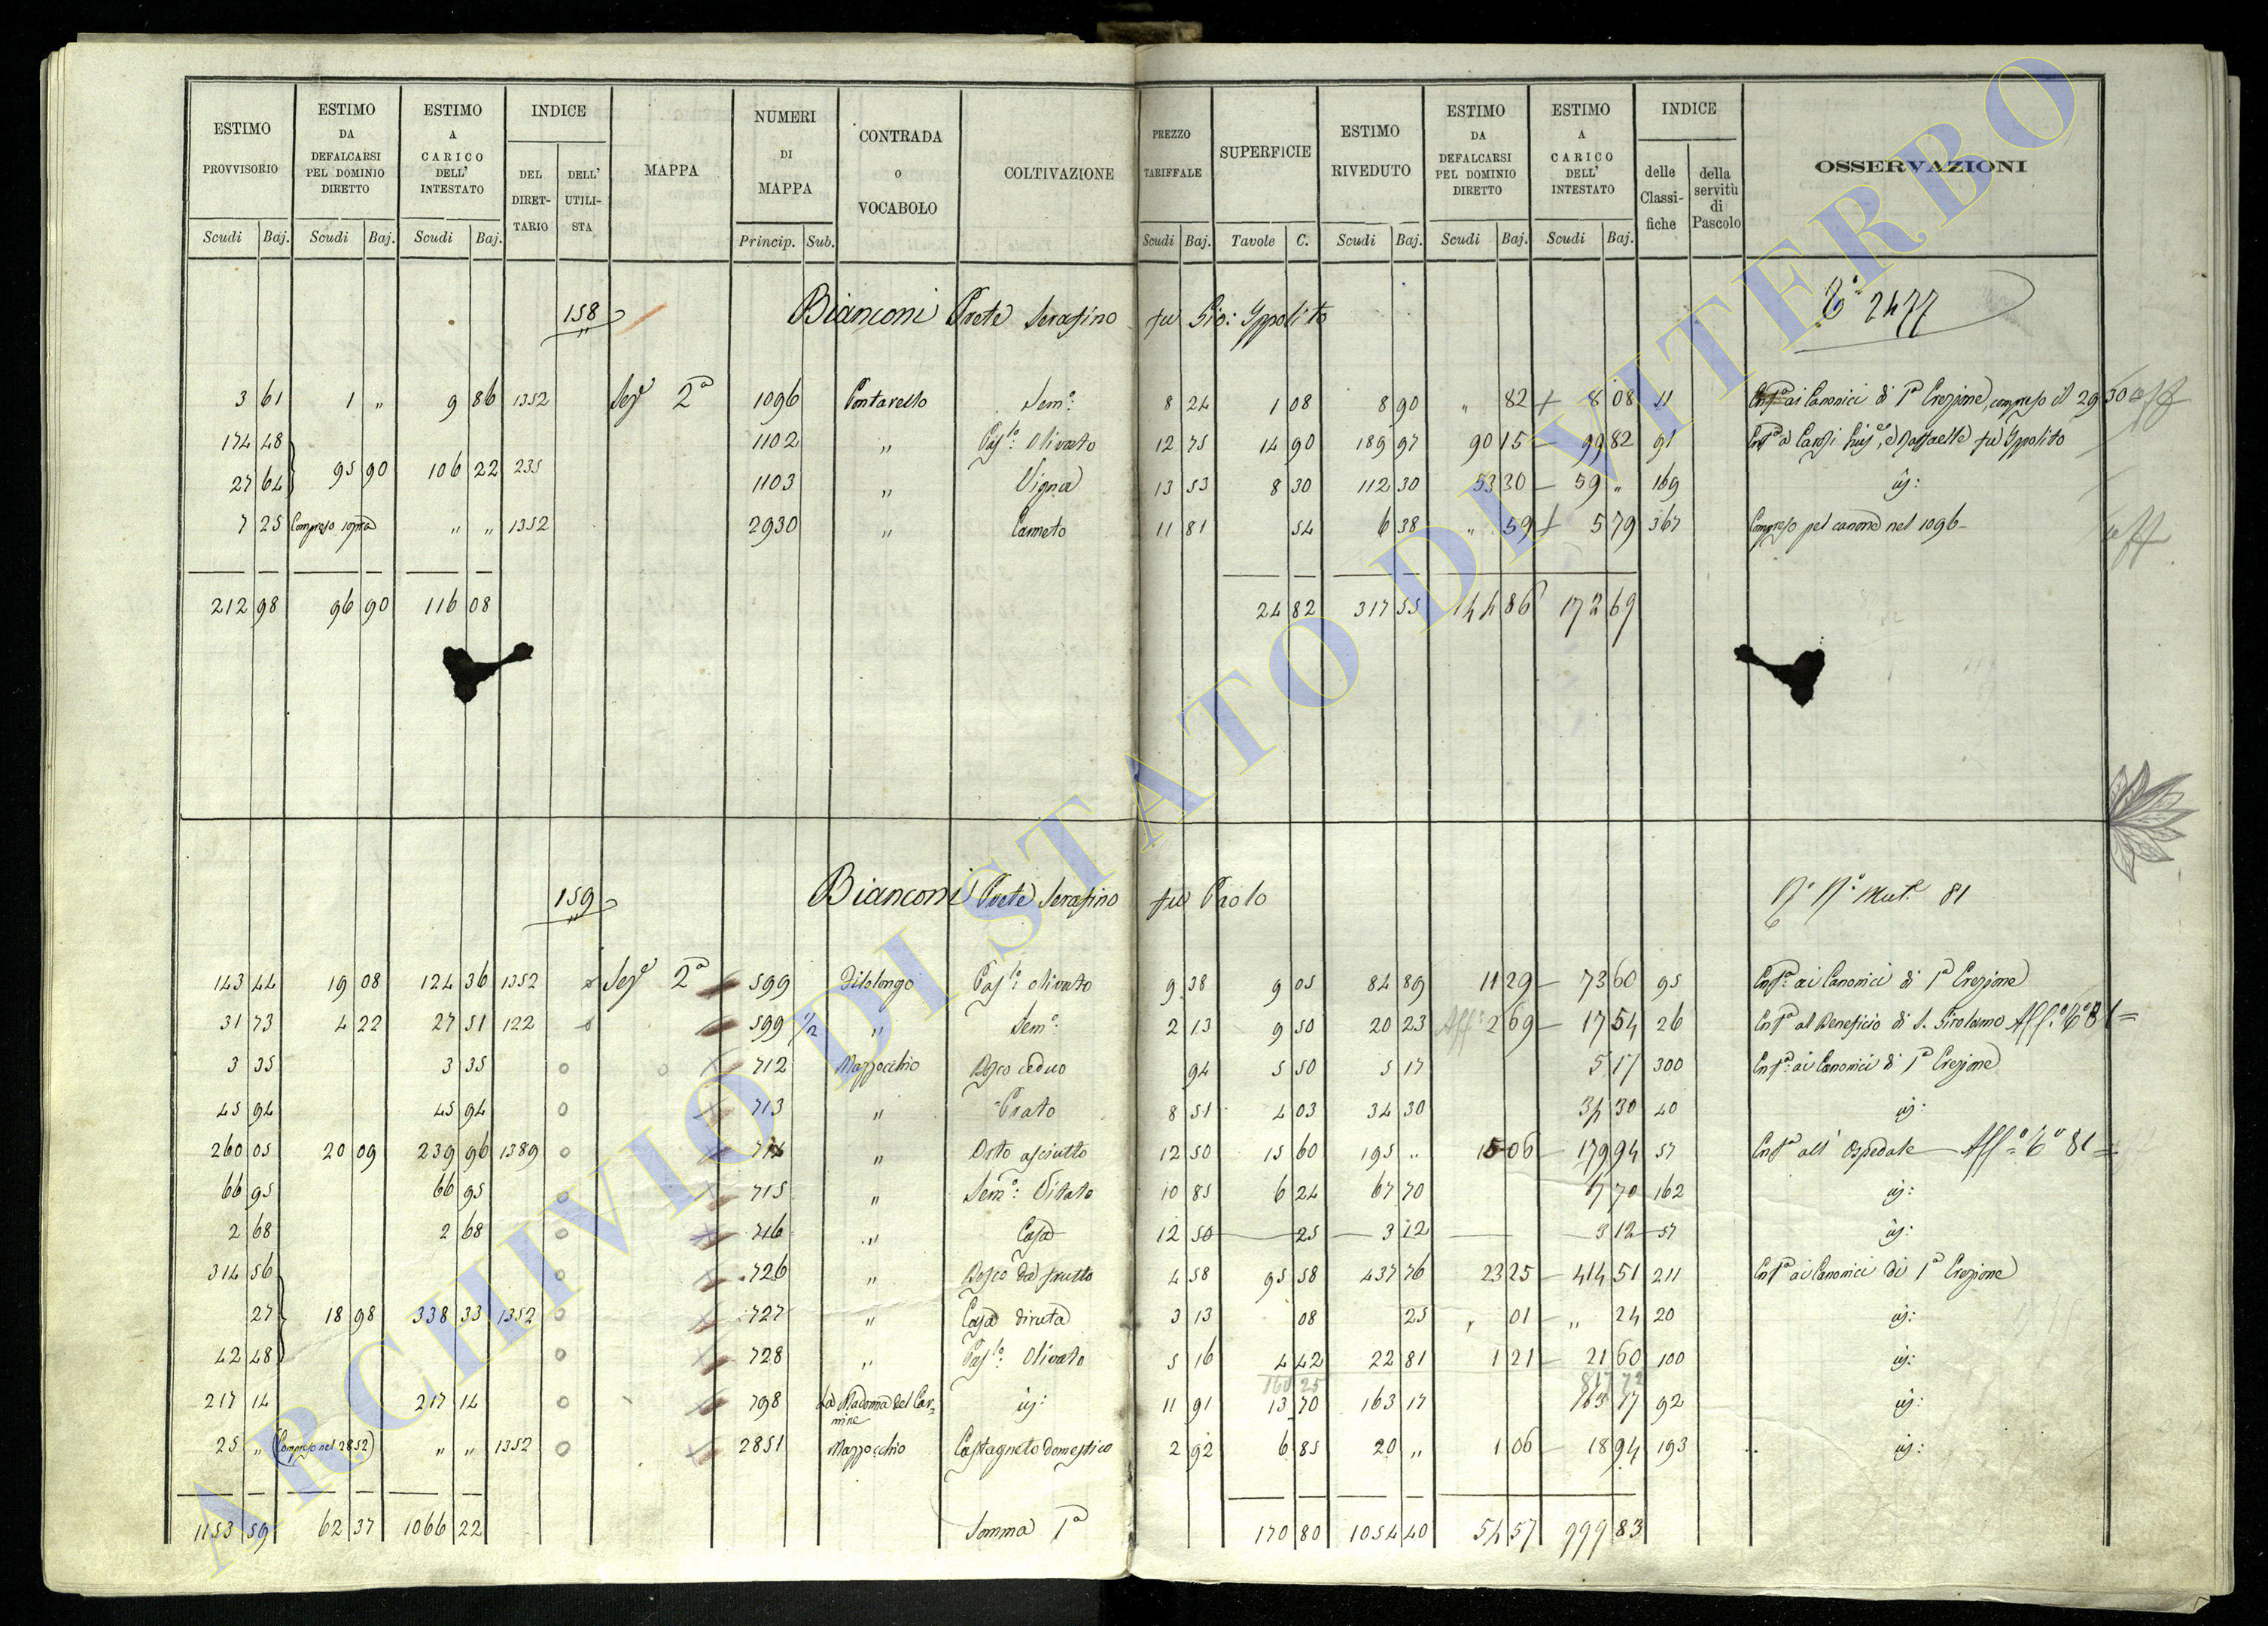 ESTIMO PROVVISORIO | ESTIMO DA DEFALCARSI PEL DOMINIO DIRETTO | ESTIMO A CARICO DELL' INTESTATO | INDICE | MAPPA | NUMERI DI MAPPA | CONTRADA O VOCABOLO | COLTIVAZIONE | PREZZO TARIFFALE | SUPERFICIE | ESTIMO RIVEDUTO | ESTIMO DA DEFALCARSI PEL DOMINIO DIRETTO | ESTIMO A CARICO DELL' INTESTATO | INDICE | OSSERVAZIONI
DEL DIRETTARIO | DELL' UTILISTA | delle Classifiche | della servitù di Pascolo
Scudi | Baj. | Scudi | Baj. | Scudi | Baj. | Princip. | Sub. | Scudi | Baj. | Tavole | C. | Scudi | Baj. | Scudi | Baj. | Scudi | Baj.
158 Bianconi Prete Serafino fu Gio: Ippolito 2477
3 61 1 " 9 86 1352 Sezᵉ 2ᵃ 1096 Pontarello Semᵒ: 8 24 1 08 8 90 " 82 + 8 08 11 Enfᵃ ai Canonici di 1ᵃ Erezione, compreso il 2930 aff
174 48 1102 " Pasˡᵒ: Olivato 12 75 14 90 189 97 90 15 – 99 82 91 Enfᵃ a Carosi Giusᵉ, e Raffaelle fu Ippolito
27 64 95 90 106 22 235 1103 " Vigna 13 53 8 30 112 30 53 30 – 59 " 169 id:
7 25 Compreso sopra " " 1352 2930 " Canneto 11 81 54 6 38 " 59 + 5 79 367 Compreso pel canone nel 1096 – aff
212 98 96 90 116 08 24 82 317 55 144 86 172 69
159 Bianconi Prete Serafino fu Paolo Mutᵉ 81
143 44 19 08 124 36 1352 Sezᵉ 2ᵃ 599 Filolongo Pasˡᵒ: olivato 9 38 9 05 84 89 11 29 – 73 60 95 Enfᵃ: ai Canonici di 1ᵃ Erezione
31 73 4 22 27 51 122 599 1/2 " Semᵒ: 2 13 9 50 20 23 Aff: 2 69 – 17 54 26 Enfᵃ al Beneficio di S. Girolamo Aff.ᵒ 81 =
3 35 3 35 o o 712 Mazzocchio Bosco ceduo 94 5 50 5 17 5 17 300 Enfᵃ: ai Canonici di 1ᵃ Erezione
45 94 45 94 o 713 " Prato 8 51 4 03 34 30 34 30 40 id:
260 05 20 09 239 96 1389 o 714 " Orto asciutto 12 50 15 60 195 " 15 06 – 179 94 57 Enfᵃ all' Ospedale Aff.ᵒ 81 =
66 95 66 95 o 715 " Semᵒ: Vitato 10 85 6 24 67 70 67 70 162 id:
2 68 2 68 o 716 " Casa 12 50 25 3 12 3 12 57 id:
314 56 o 726 " Bosco da frutto 4 58 95 58 437 76 23 25 – 414 51 211 Enfᵃ ai Canonici di 1ᵃ Erezione
27 18 98 338 33 1352 o 727 " Casa diruta 3 13 08 25 " 01 – " 24 20 id:
42 48 o 728 " Pasˡᵒ: Olivato 5 16 4 42 22 81 1 21 – 21 60 100 id:
160 25 817 72
217 14 217 14 o 798 La Madonna del Carmine id: 11 91 13 70 163 17 163 17 92 id:
25 " (Compreso nel 2852) " " 1352 o 2851 Mazzocchio Castagneto domestico 2 92 6 85 20 " 1 06 – 18 94 193 id:
1153 59 62 37 1066 22 Somma 1ᵃ 170 80 1054 40 54 57 999 83
ARCHIVIO DI STATO DI VITERBO